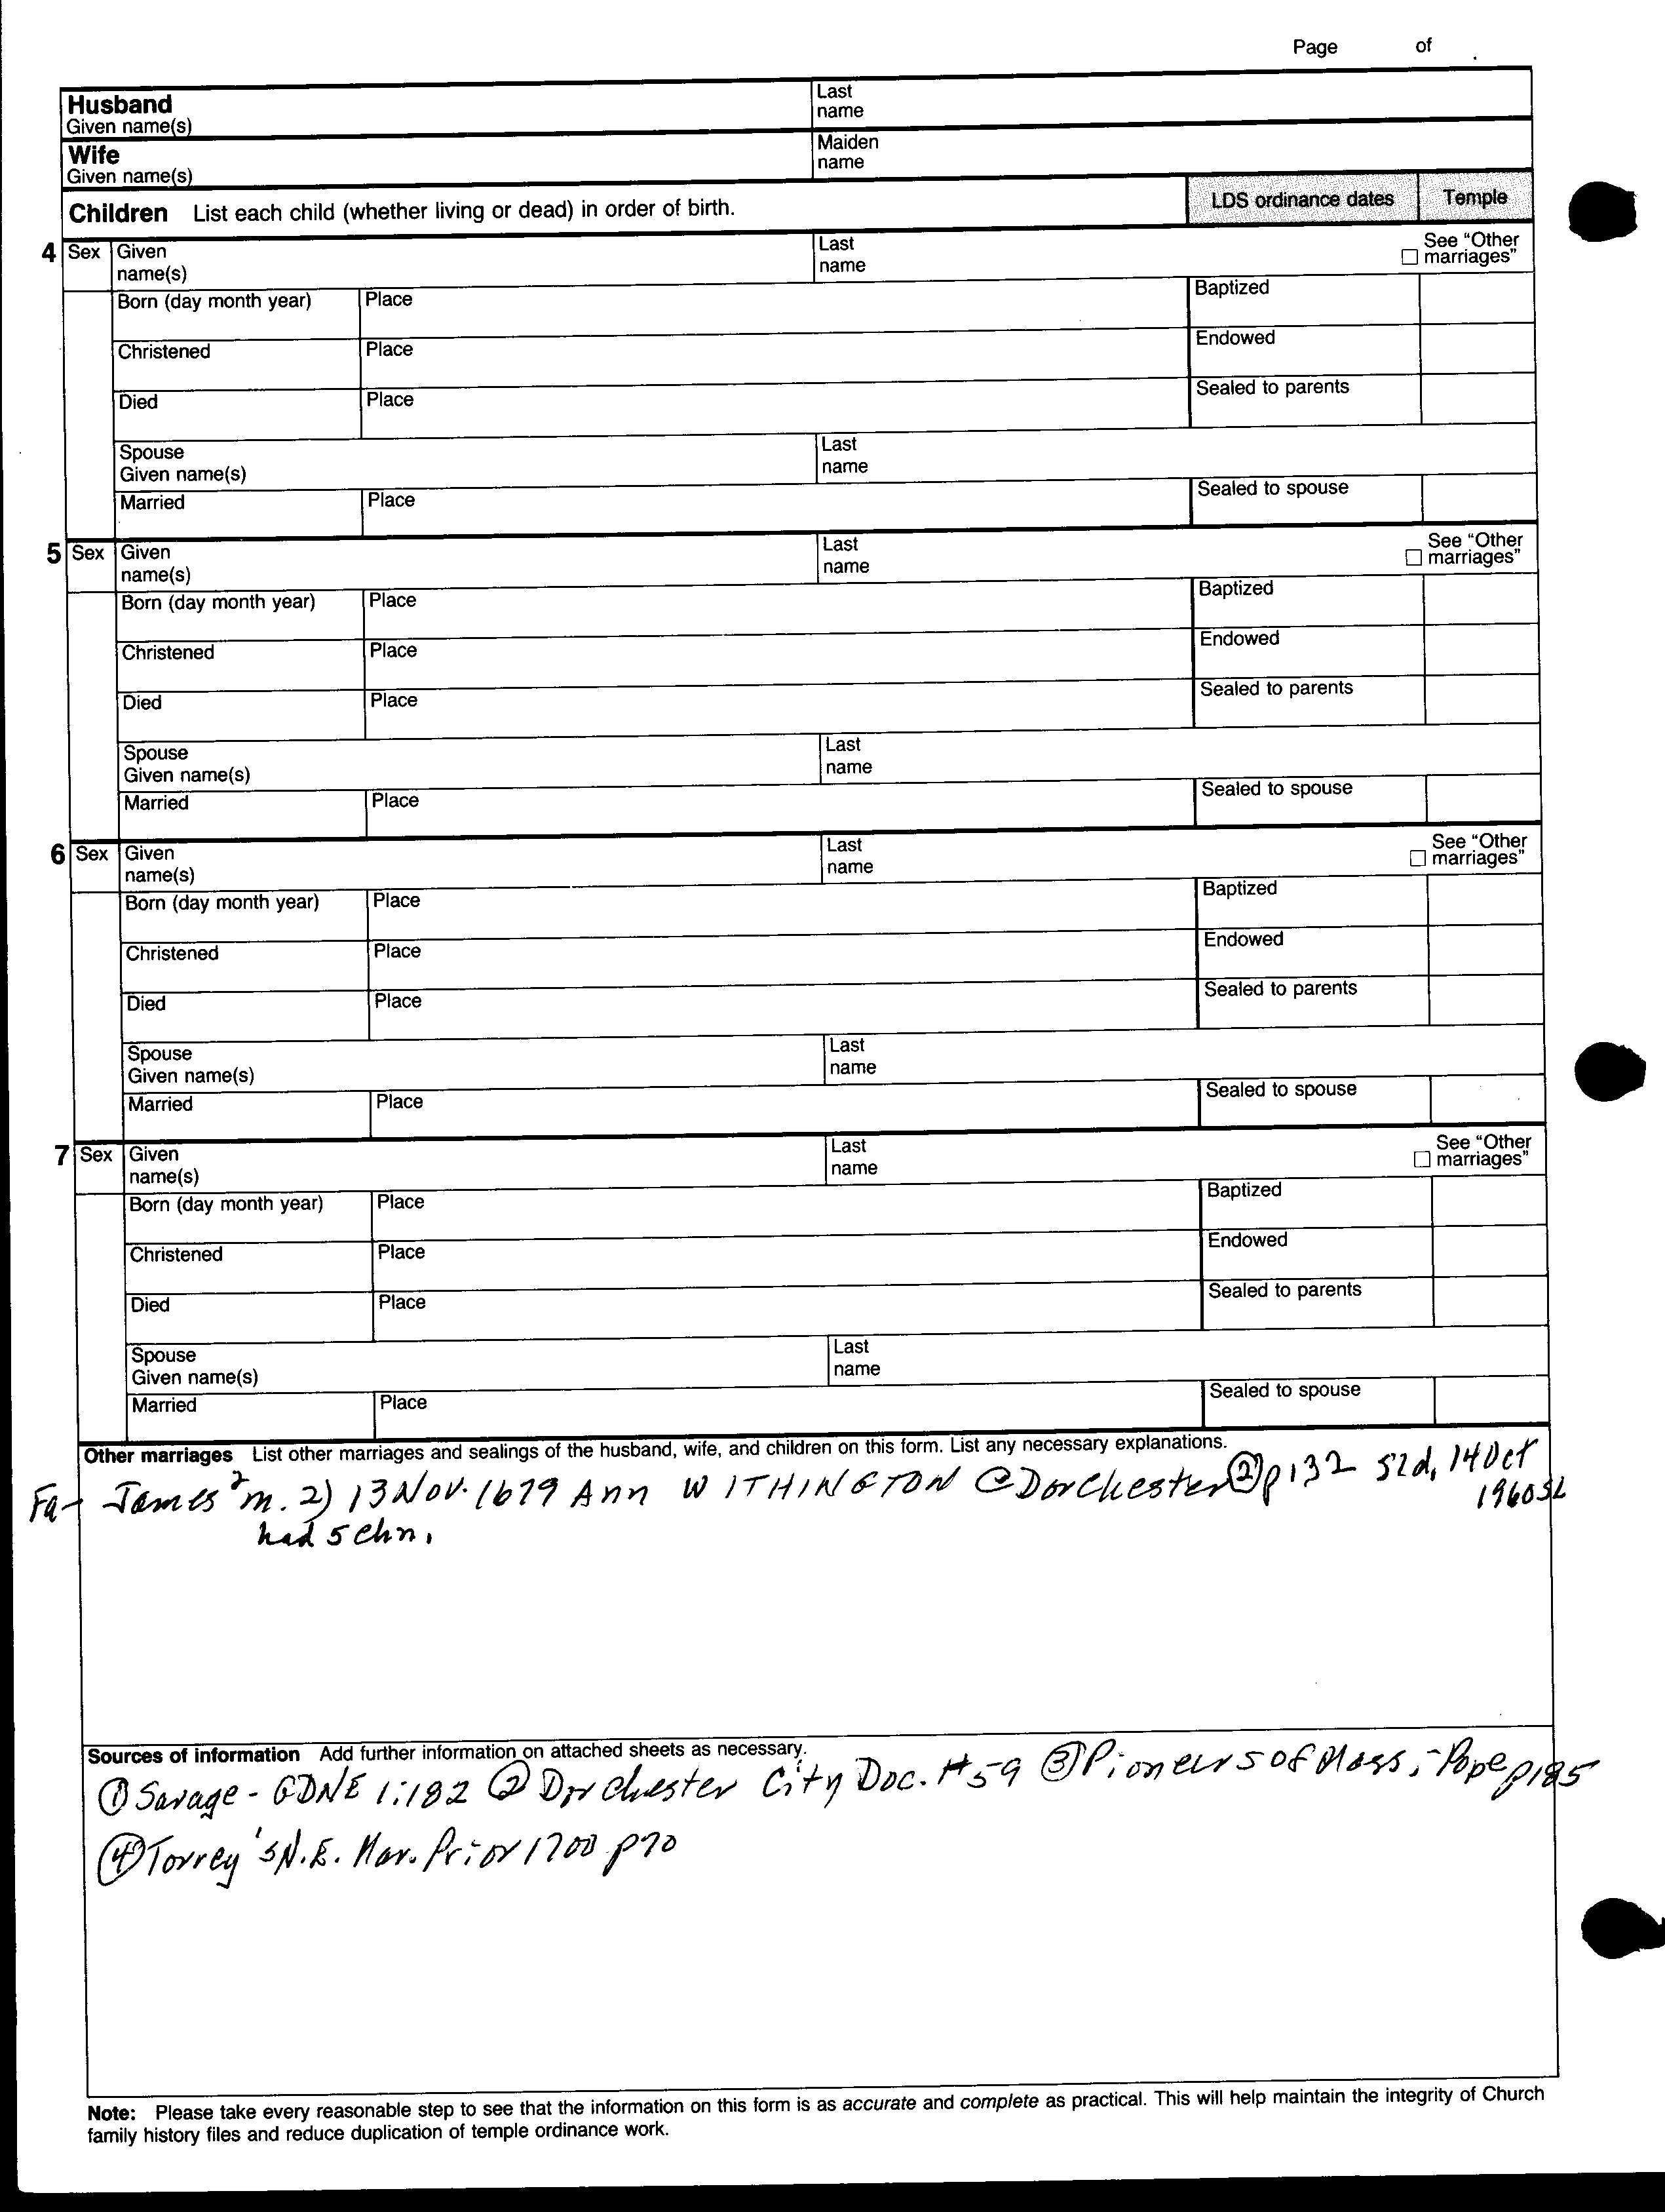 Page of
Husband
Given name(s)
Last
name
Wife
Given name(s)
Maiden
name
Children List each child (whether living or dead) in order of birth.
LDS ordinance dates Temple
4 Sex Given
name(s)
Last
name
See "Other
marriages"
Born (day month year) Place Baptized
Christened Place Endowed
Died Place Sealed to parents
Spouse
Given name(s)
Last
name
Married Place Sealed to spouse
5 Sex Given
name(s)
Last
name
See "Other
marriages"
Born (day month year) Place Baptized
Christened Place Endowed
Died Place Sealed to parents
Spouse
Given name(s)
Last
name
Married Place Sealed to spouse
6 Sex Given
name(s)
Last
name
See "Other
marriages"
Born (day month year) Place Baptized
Christened Place Endowed
Died Place Sealed to parents
Spouse
Given name(s)
Last
name
Married Place Sealed to spouse
7 Sex Given
name(s)
Last
name
See "Other
marriages"
Born (day month year) Place Baptized
Christened Place Endowed
Died Place Sealed to parents
Spouse
Given name(s)
Last
name
Married Place Sealed to spouse
Other marriages List other marriages and sealings of the husband, wife, and children on this form. List any necessary explanations.
Fa- James² m. 2) 13 Nov. 1679 Ann WITHINGTON @ Dorchester ② p132 sld, 14 Oct
1960 SL
had 5 chn.
Sources of information Add further information on attached sheets as necessary.
① Savage - GDNE 1:182 ② Dorchester City Doc. #59 ③ Pioneers of Mass, - Pope p185
④ Torrey's N.E. Mar. Prior 1700 p70
Note: Please take every reasonable step to see that the information on this form is as accurate and complete as practical. This will help maintain the integrity of Church
family history files and reduce duplication of temple ordinance work.